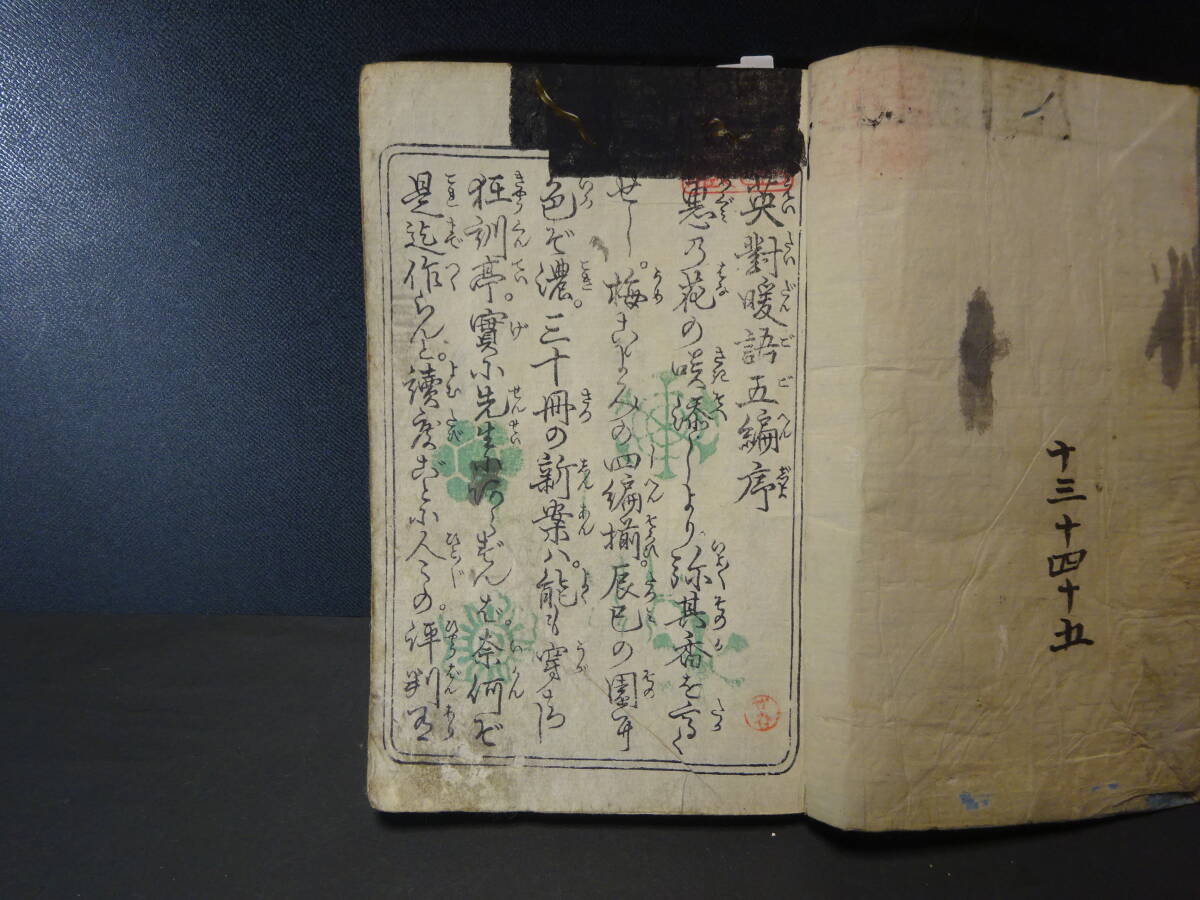 十三十四十五
英對暖語五編序
惠の花の咲添しより弥其香を高く
せし。梅こよみの四編揃。辰巳の園
色ぞ濃。三十冊の新案ハ。能も穿
狂訓亭。實に先生にあらずんば。奈何ぞ
是迄作らんと。讀度ごとに人々の評判